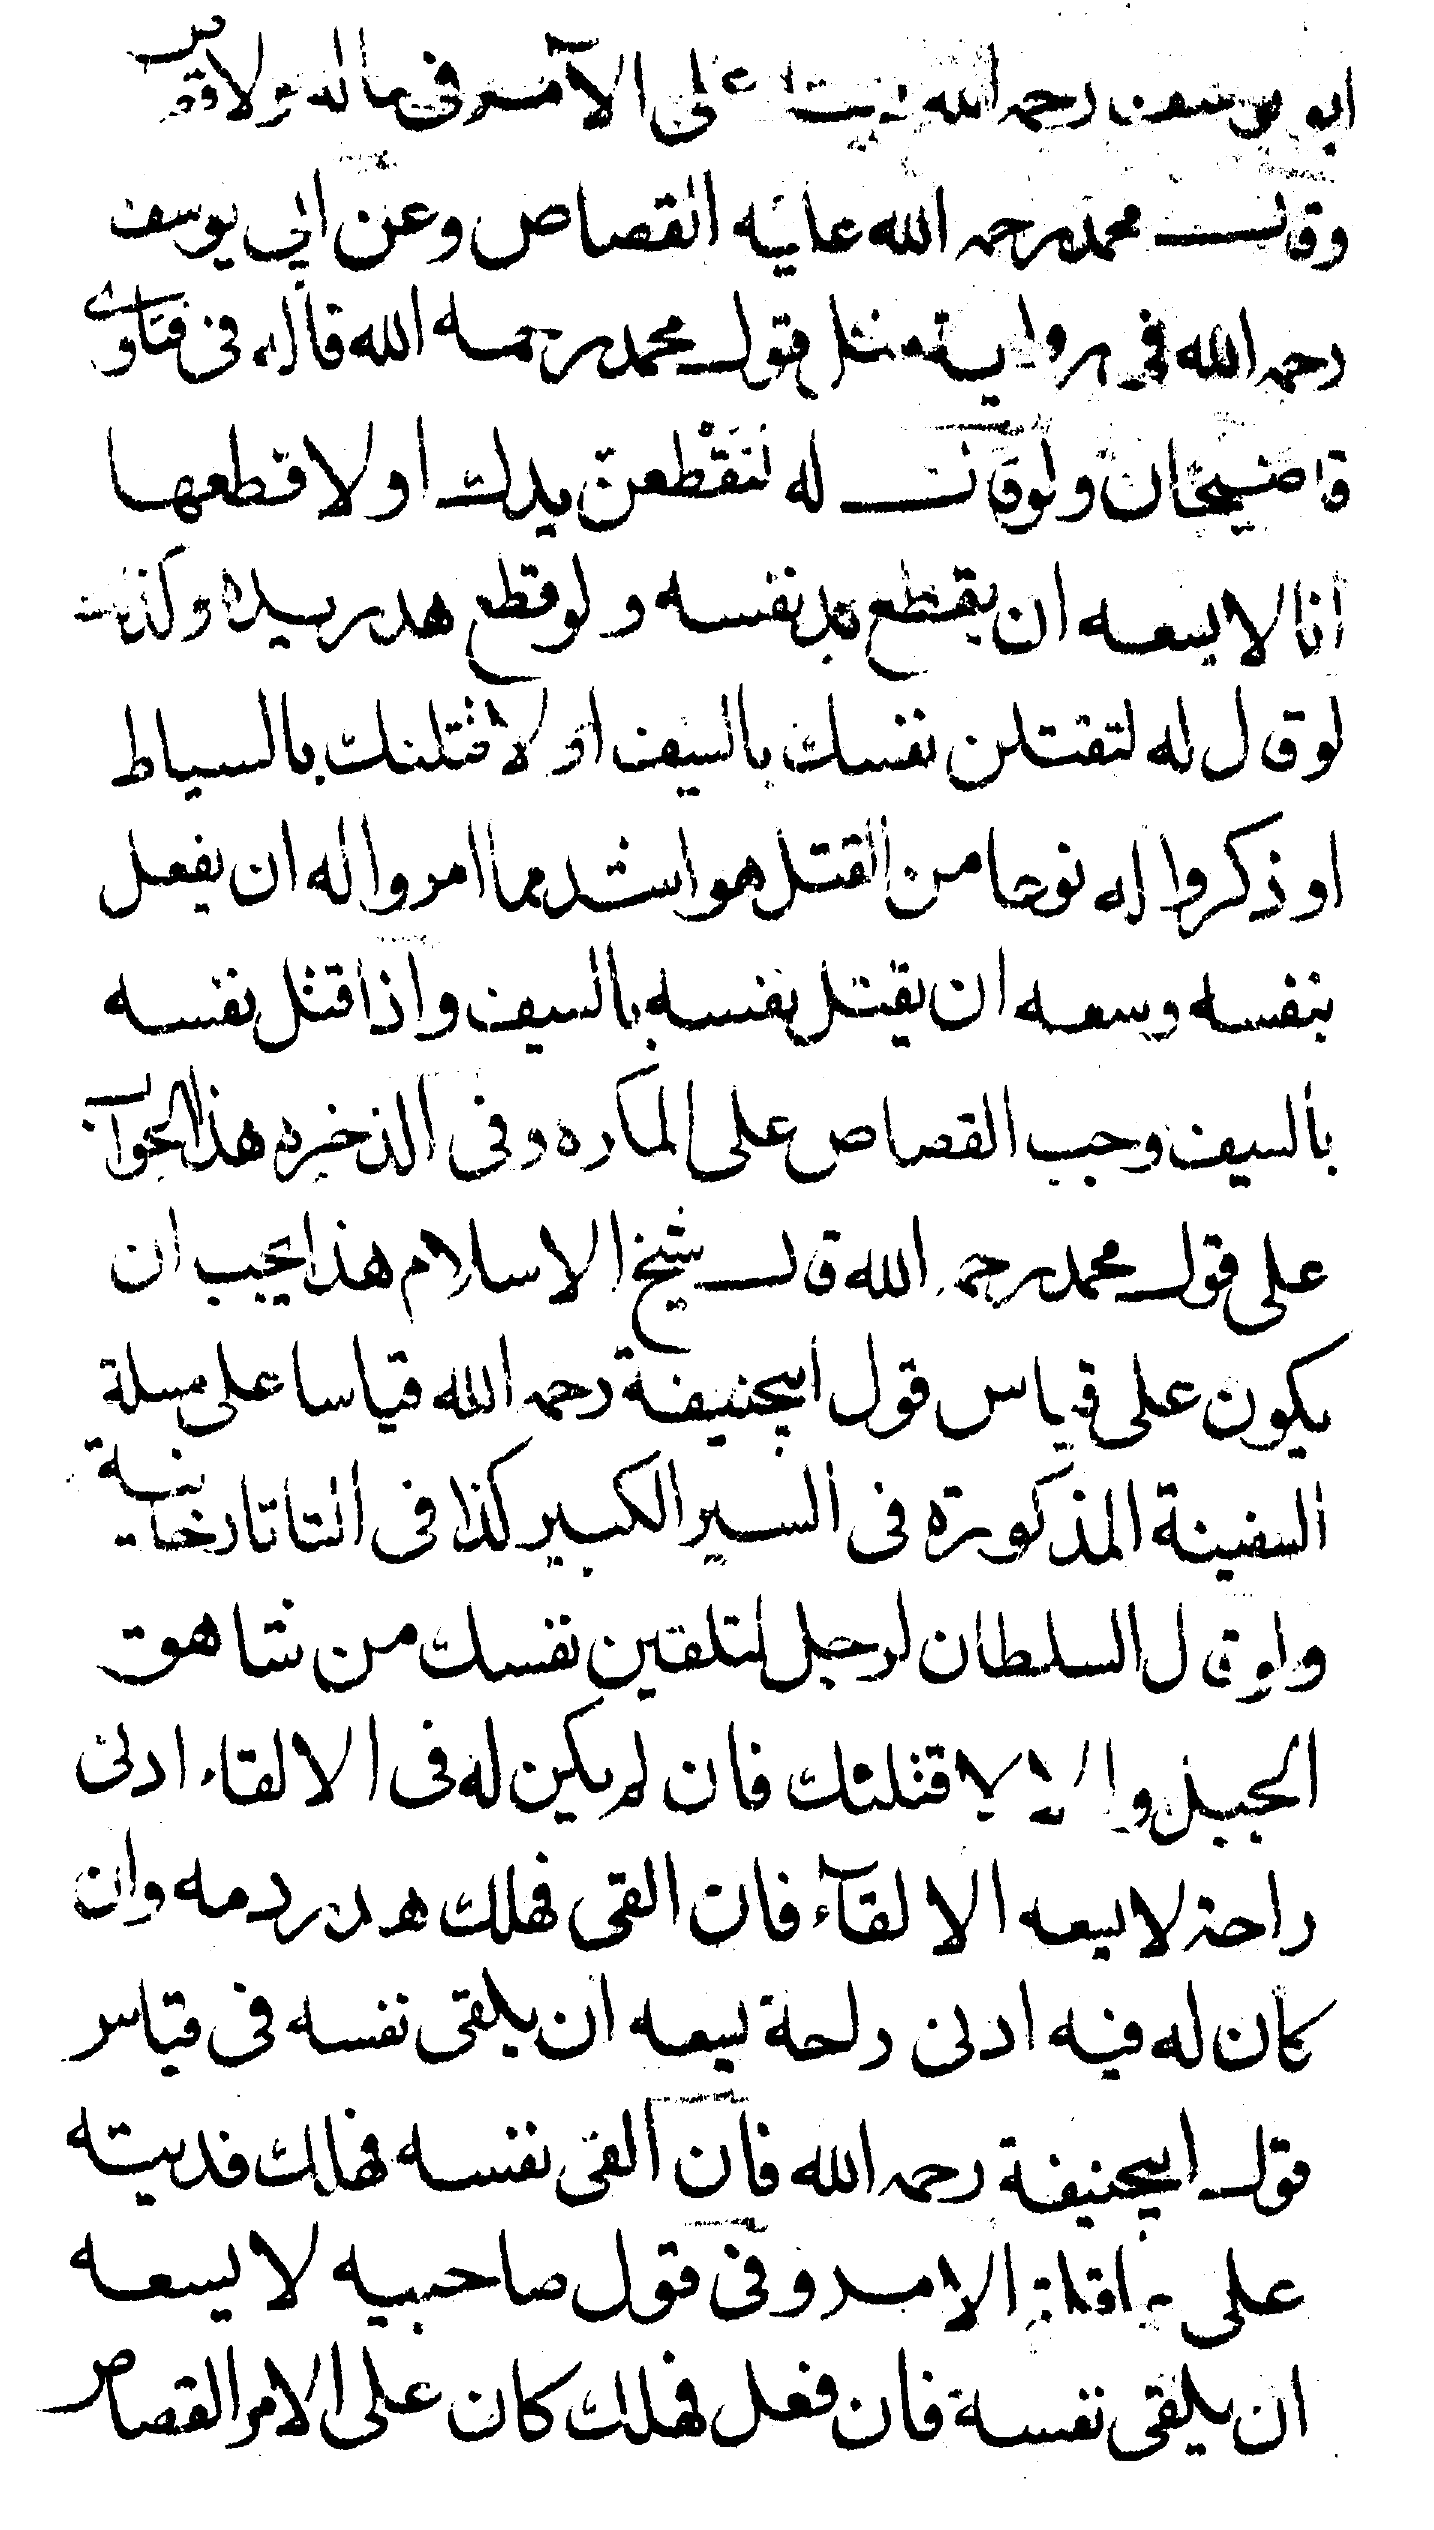 ابو يوسف رحمه الله ديته على الآمر فى ماله ولا قصاص
وقال محمد رحمه الله عليه القصاص وعن ابي يوسف
رحمه الله فى رواية مثل قول محمد رحمه الله قاله فى فتاوى
قاضيخان ولو قال له لتقطعن يدك او لاقطعها
انا لا يسعه ان يقطع يد نفسه ولو قطع هدر يده وكذلك
لو قال له لتقتلن نفسك بالسيف او لاقتلنك بالسياط
او ذكروا له نوعا من القتل هو اشد مما امروا له ان يفعل
بنفسه وسعه ان يقتل نفسه بالسيف واذا قتل نفسه
بالسيف وجب القصاص على المكره وفى الذخيره هذا الجواب
على قول محمد رحمه الله قال شيخ الاسلام هذا يجب ان
يكون على قياس قول ابيحنيفة رحمه الله قياسا على مسلة
السفينة المذكورة فى السير الكبير كذا فى التاتارخانية
ولو قال السلطان لرجل لتلقين نفسك من شاهق
الجبل والا لاقتلنك فان لم يكن له فى الالقاء ادنى
راحة لا يسعه الالقآء فان القى فهلك هدر دمه وان
كان له فيه ادنى راحة يسعه ان يلقى نفسه فى قياس
قول ابيحنيفة رحمه الله فان القى نفسه فهلك فديته
على عاقلة الامر وفى قول صاحبيه لا يسعه
ان يلقى نفسه فان فعل فهلك كان على الامر القصاص